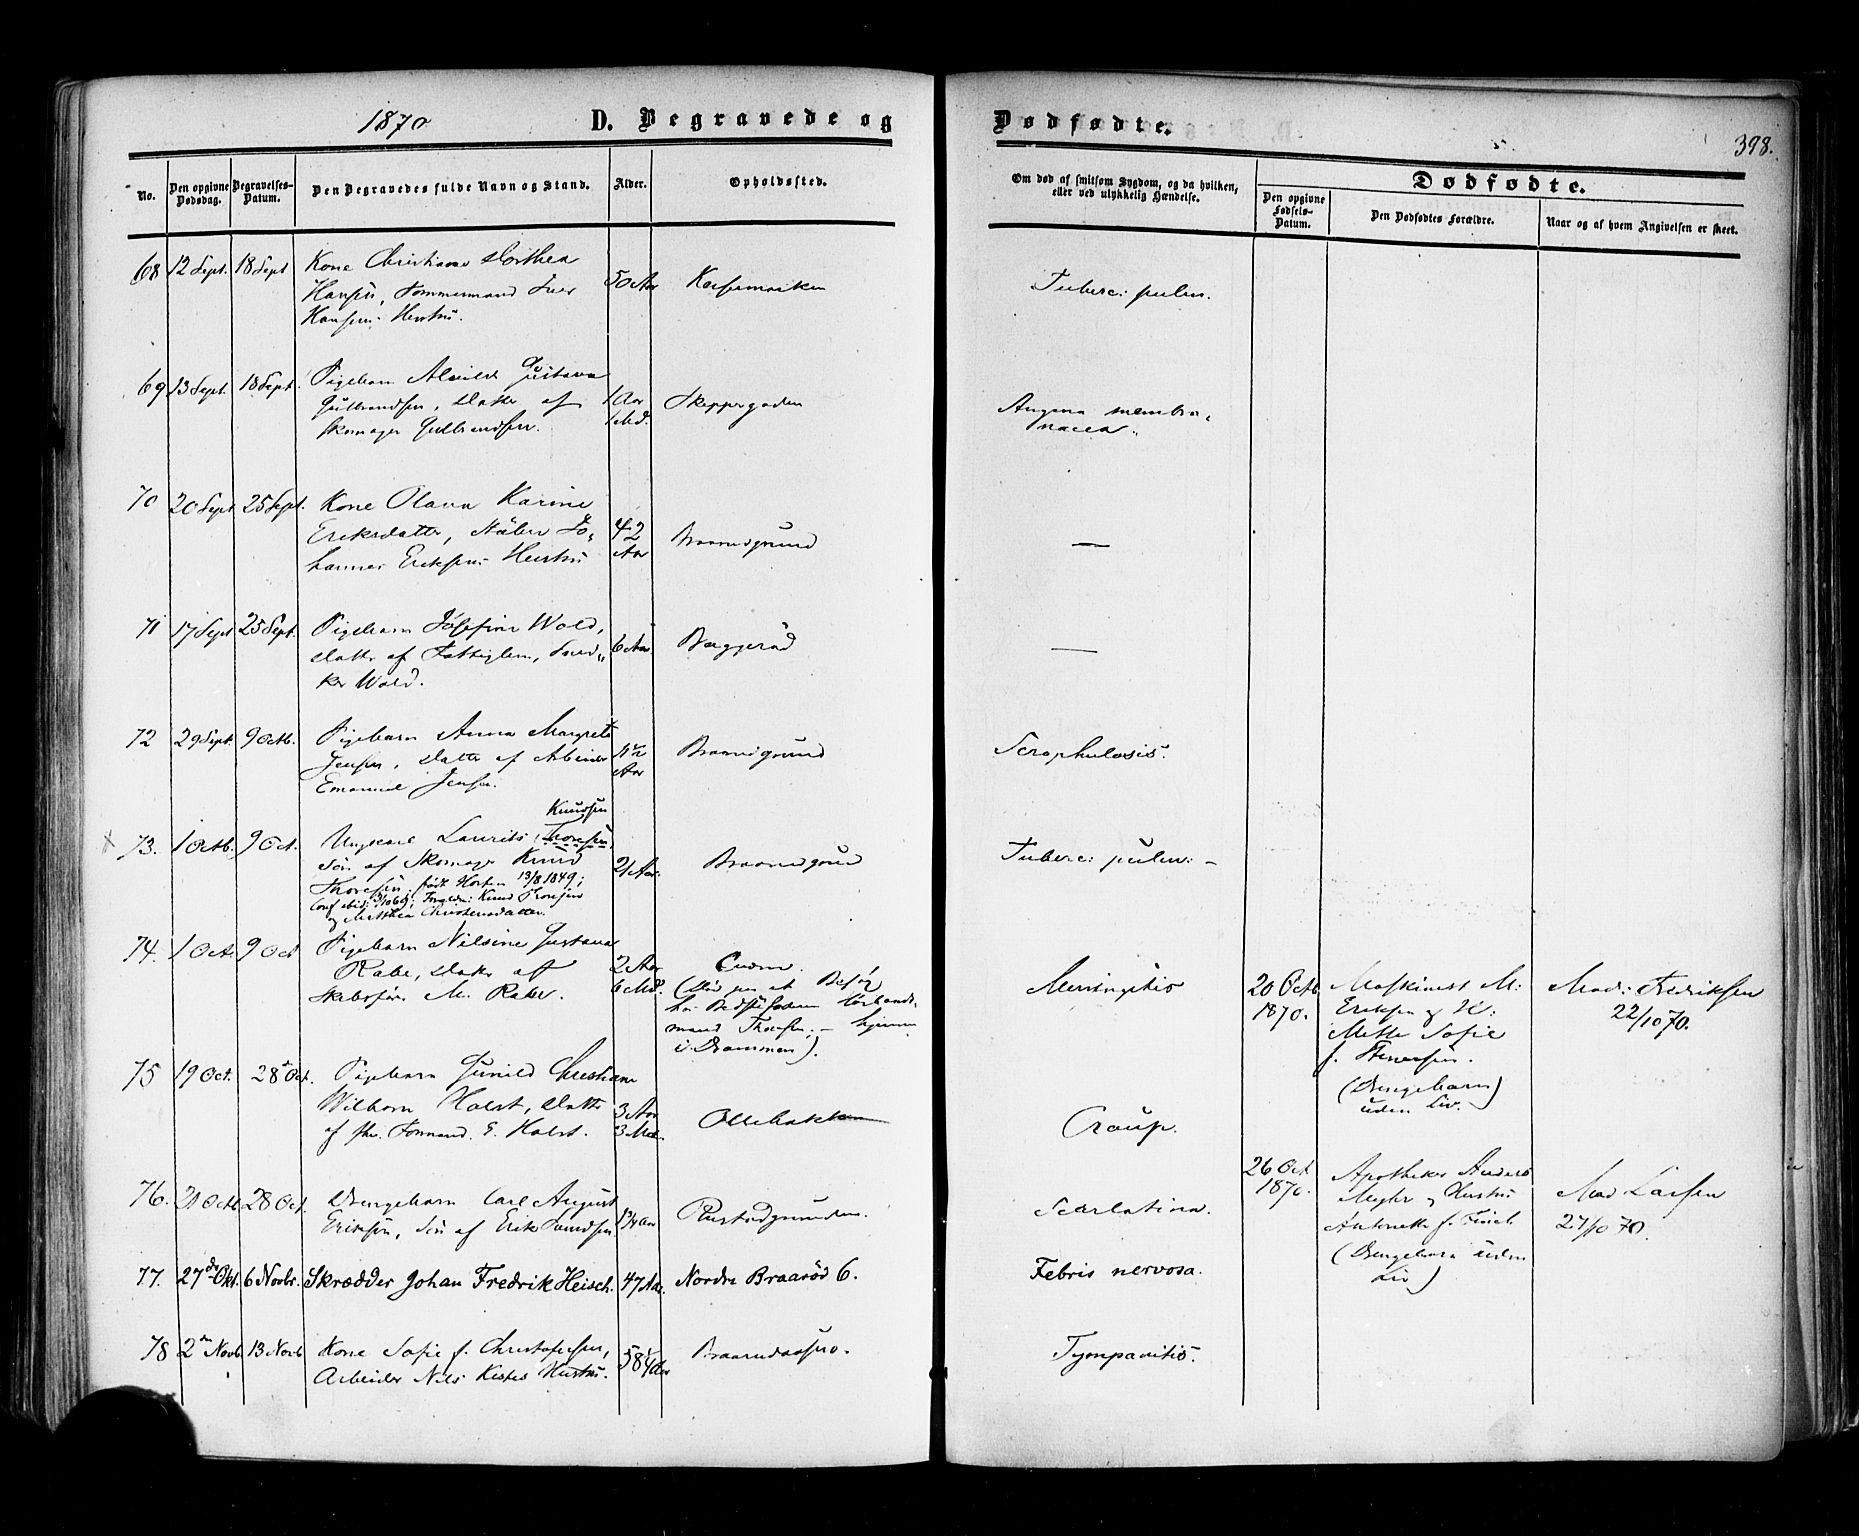 1870
D. Begravede og
Dødfødte.
398.
No.
Den opgivne Dødsdag.
Begravelses-Datum.
Den Begravedes fulde Navn og Stand.
Alder.
Opholdssted.
Om død af smitsom Sygdom, og da hvilken,
eller ved ulykkelig Hændelse.
Dødfødte.
Den opgivne Fødsels-Datum.
Den Dødfødtes Forældre.
Naar og af hvem Angivelsen er skeet.
68 12 Sept. 18 Sept Kone Christiane Dorthea
Hansen, Tømmermand Iver
Hansens Hustru.
50 Aar
Tuberc: pulm.
69 13 Sept. 18 Sept. Pigebarn Alvilde Gustava
Gulbrandsen, Datter af
Skomager Gulbrandsen.
1 Aar
1 Md.
Skeppergaden
Angina membra-
nacea.
70 20 Sept 25 Sept. Kone Olava Karine
Eriksdatter, Jo-
hannes Eriksens Hustru
42
Aar
Braarudgrund
—
71 17 Sept 25 Sept. Pigebarn Josefine Wold,
Datter af Fattiglem, Sned-
ker Wold.
6 Aar
Baggerød
—
72 29 Sept. 9 Octb. Pigebarn Anna Margrete
Jensen, Datter af Arbeider
Emanuel Jensen.
1 1/2
Aar
Braarudgrund
Scrophulosis.
73. 1 Octb. 9 Oct. Ungkarl Laurits Thoresen
Knudsen
Søn af Skomager Knud
Thoresen; født Horten 13/8 1849;
Forældre: Knud Thoresen
og Matthea Christensdatter.
21 Aar
Braarudgrund
Tuberc: pulm: -
74. 1 Oct. 9 Oct Pigebarn Nilsine Gustava
Rabe, Datter af
Skibsfører M. Rabe.
2 Aar
6 Md.
(Død paa et Besøg
hos Bedstefaderen
mand Thoresen; - hjemme
i Drammen).
Meningitis
20 Octb
1870.
Maskinist M:
Eriksen og H:
Mette Sofie
f.
(Drengebarn)
uden Liv.
Mad: Fredriksen
22/10 70.
75 19 Oct. 28 Oct. Pigebarn Gunild Christiane
Wilhorn Holst, Datter
af Formand E. Holst.
3 Aar
3 Md.
Ollebakken
Croup.
76. 21 Octb 28 Oct. Drengebarn Carl August
Eriksen, Søn af Erik
1 3/4 Aar
Rustadgrunden.
Scarlatina.
26 Oct
1870.
Apotheker Anders
og Hustru
Antonette f.
(Drengebarn uden
Liv)
Mad Larsen
27/10 70.
77. 27de Okt. 6 Novbr. Skrædder Johan Fredrik Heisch. 47 Aar. Nordre Braarød 6.
Febris nervosa.
78 2den Novb. 13 Novb Kone Sofie f. Christofersen,
Arbeider Nils Hustru.
Tympanitis.